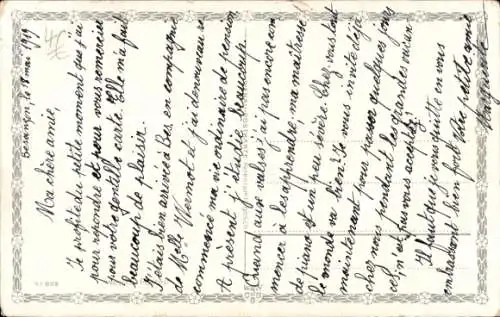 Besançon, le 1 mai 1919
Ma chère amie,
Je profite du petite moment que j'ai
pour répondre et pour vous remercier
pour votre gentille carte. Elle m'a fait
beaucoup de plaisir.
J'étais bien arrivée à Bes. en compagnie
de Melle Wermot et j'ai de nouveau re
commencé ma vie ordinaire de pension.
A présent j'étudie beaucoup.
Quand aux valses j'ai pas encore com
mencer à les apprendre, ma maîtresse
de piano est un peu sévère. Chez vous tout
le monde va bien? Je vous invite déjà
maintenant pour passer quelques jours
chez nous pendant les grandes vacances
cel, n'est pas vous acceptez?
Il faut que je vous quitte en vous
embrassant bien fort Votre petite amie